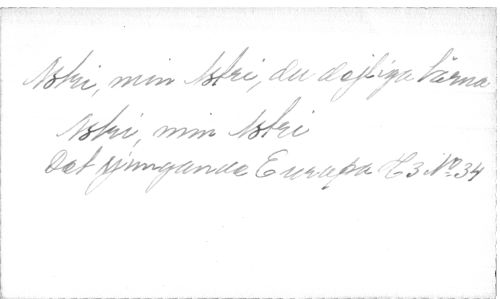 Astri, min Astri, du dejliga tärna
Astri, min Astri
Det sjungande Europa H3 No. 34